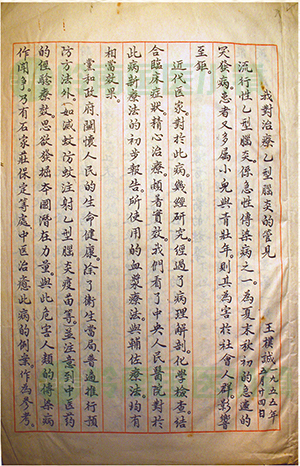 我對治療乙型腦炎的管見
王樸誠 一九五五年
五月十四日
流行性乙型腦炎。係急性傳染病之一。為夏末秋初的急遽的
突發病。患者又多屬小兒與青壯年。則其為害於社會人群。影響
至鉅。
近代医家。對於此病。幾經研究。經過了病理解剖。化學檢查。結
合臨床症狀。精心治療。頗著實效。我們看了中央人民醫院對於
此病新療法的初步報告。所使用的血漿療法。與輔佐療法。均有
相當效果。
黨和政府。關懷人民的生命健康。除了衛生當局普遍推行預
防方法外。(如滅蚊防蚊注射乙型腦炎疫苗等。)並注意到中医药
的經驗療效。思欲發掘本國潛在力量。與此危害人類的傳染病
作鬥爭。乃有石家莊保定等處。中医治癒此病的例案。作為參考。